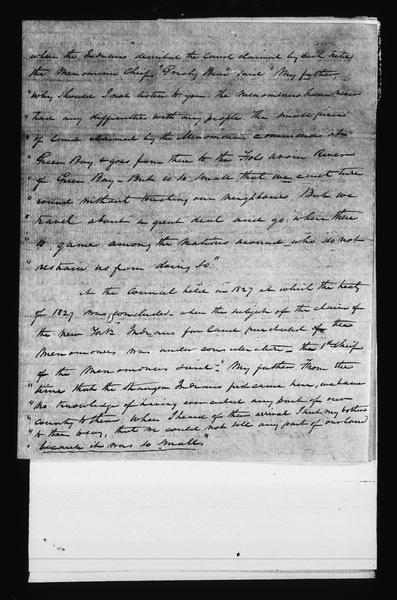 when the Indians described the land claimed by each tribe
the Menominie Chief, Grisly Bear said "My father,
"Why should I not listen to you. the Menomonees have never
"had any difficulties with any people The small piece
"of land claimed by the Menomonie commences at
"Green Bay & goes from there to the River
"of Green Bay - But is so small that we cannot turn
"round without touching our neighbours But we
"travel about a great deal and go where there
"is game among the nations around who do not
"restrain us from doing so."
At the Council held in 1827 at which the treaty
of 1827 was concluded - when the subject of the claim of
the New York Indians for land purchased of the
Menomonees was under consideration - the 1st Chief
of the Menomonees said - "My father From the
"time that the stranger Indians first came here, we have
"no knowledge of having ever ceded any part of our
"country to them; when I heard of their arrival I sent my brothers
"to them to say, that we could not sell any part of our land
"because it was so small."